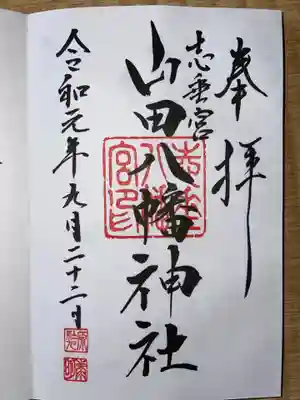 奉拝
志垂宮
山田八幡神社
志垂宮印
令和元年九月二十二日